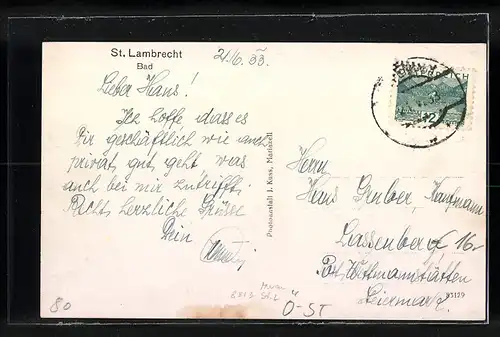 St. Lambrecht
Bad
21/6. 33.
Lieber Hans!
Ich hoffe dass es
Dir geschäftlich wie auch
privat gut geht was
auch bei mir zutrifft.
Recht herzliche Grüsse
Dein
Photoanstalt J. Kuss, Mariazell
Herrn
Hans Gruber, Kaufmann
16
Post Wettmannstätten
Steiermark.
83129
80
O-ST